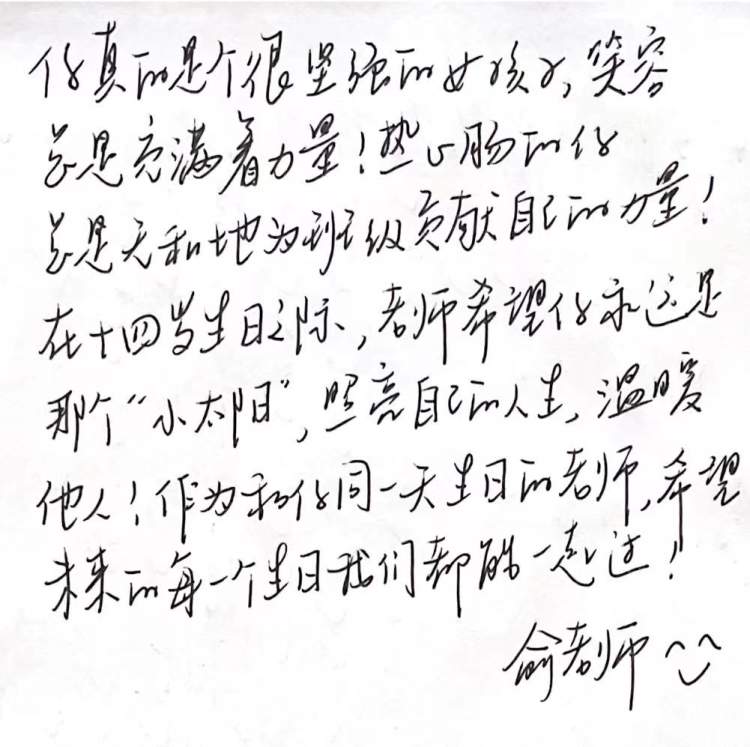 你真的是个很坚强的女孩子,笑容
总是充满着力量!热心肠的你
总是无私地为班级贡献自己的力量!
在十四岁生日之际,老师希望你永远是
那个“小太阳”,照亮自己的人生,温暖
他人!作为和你同一天生日的老师,希望
未来的每一个生日我们都能一起过!
俞老师 ^^